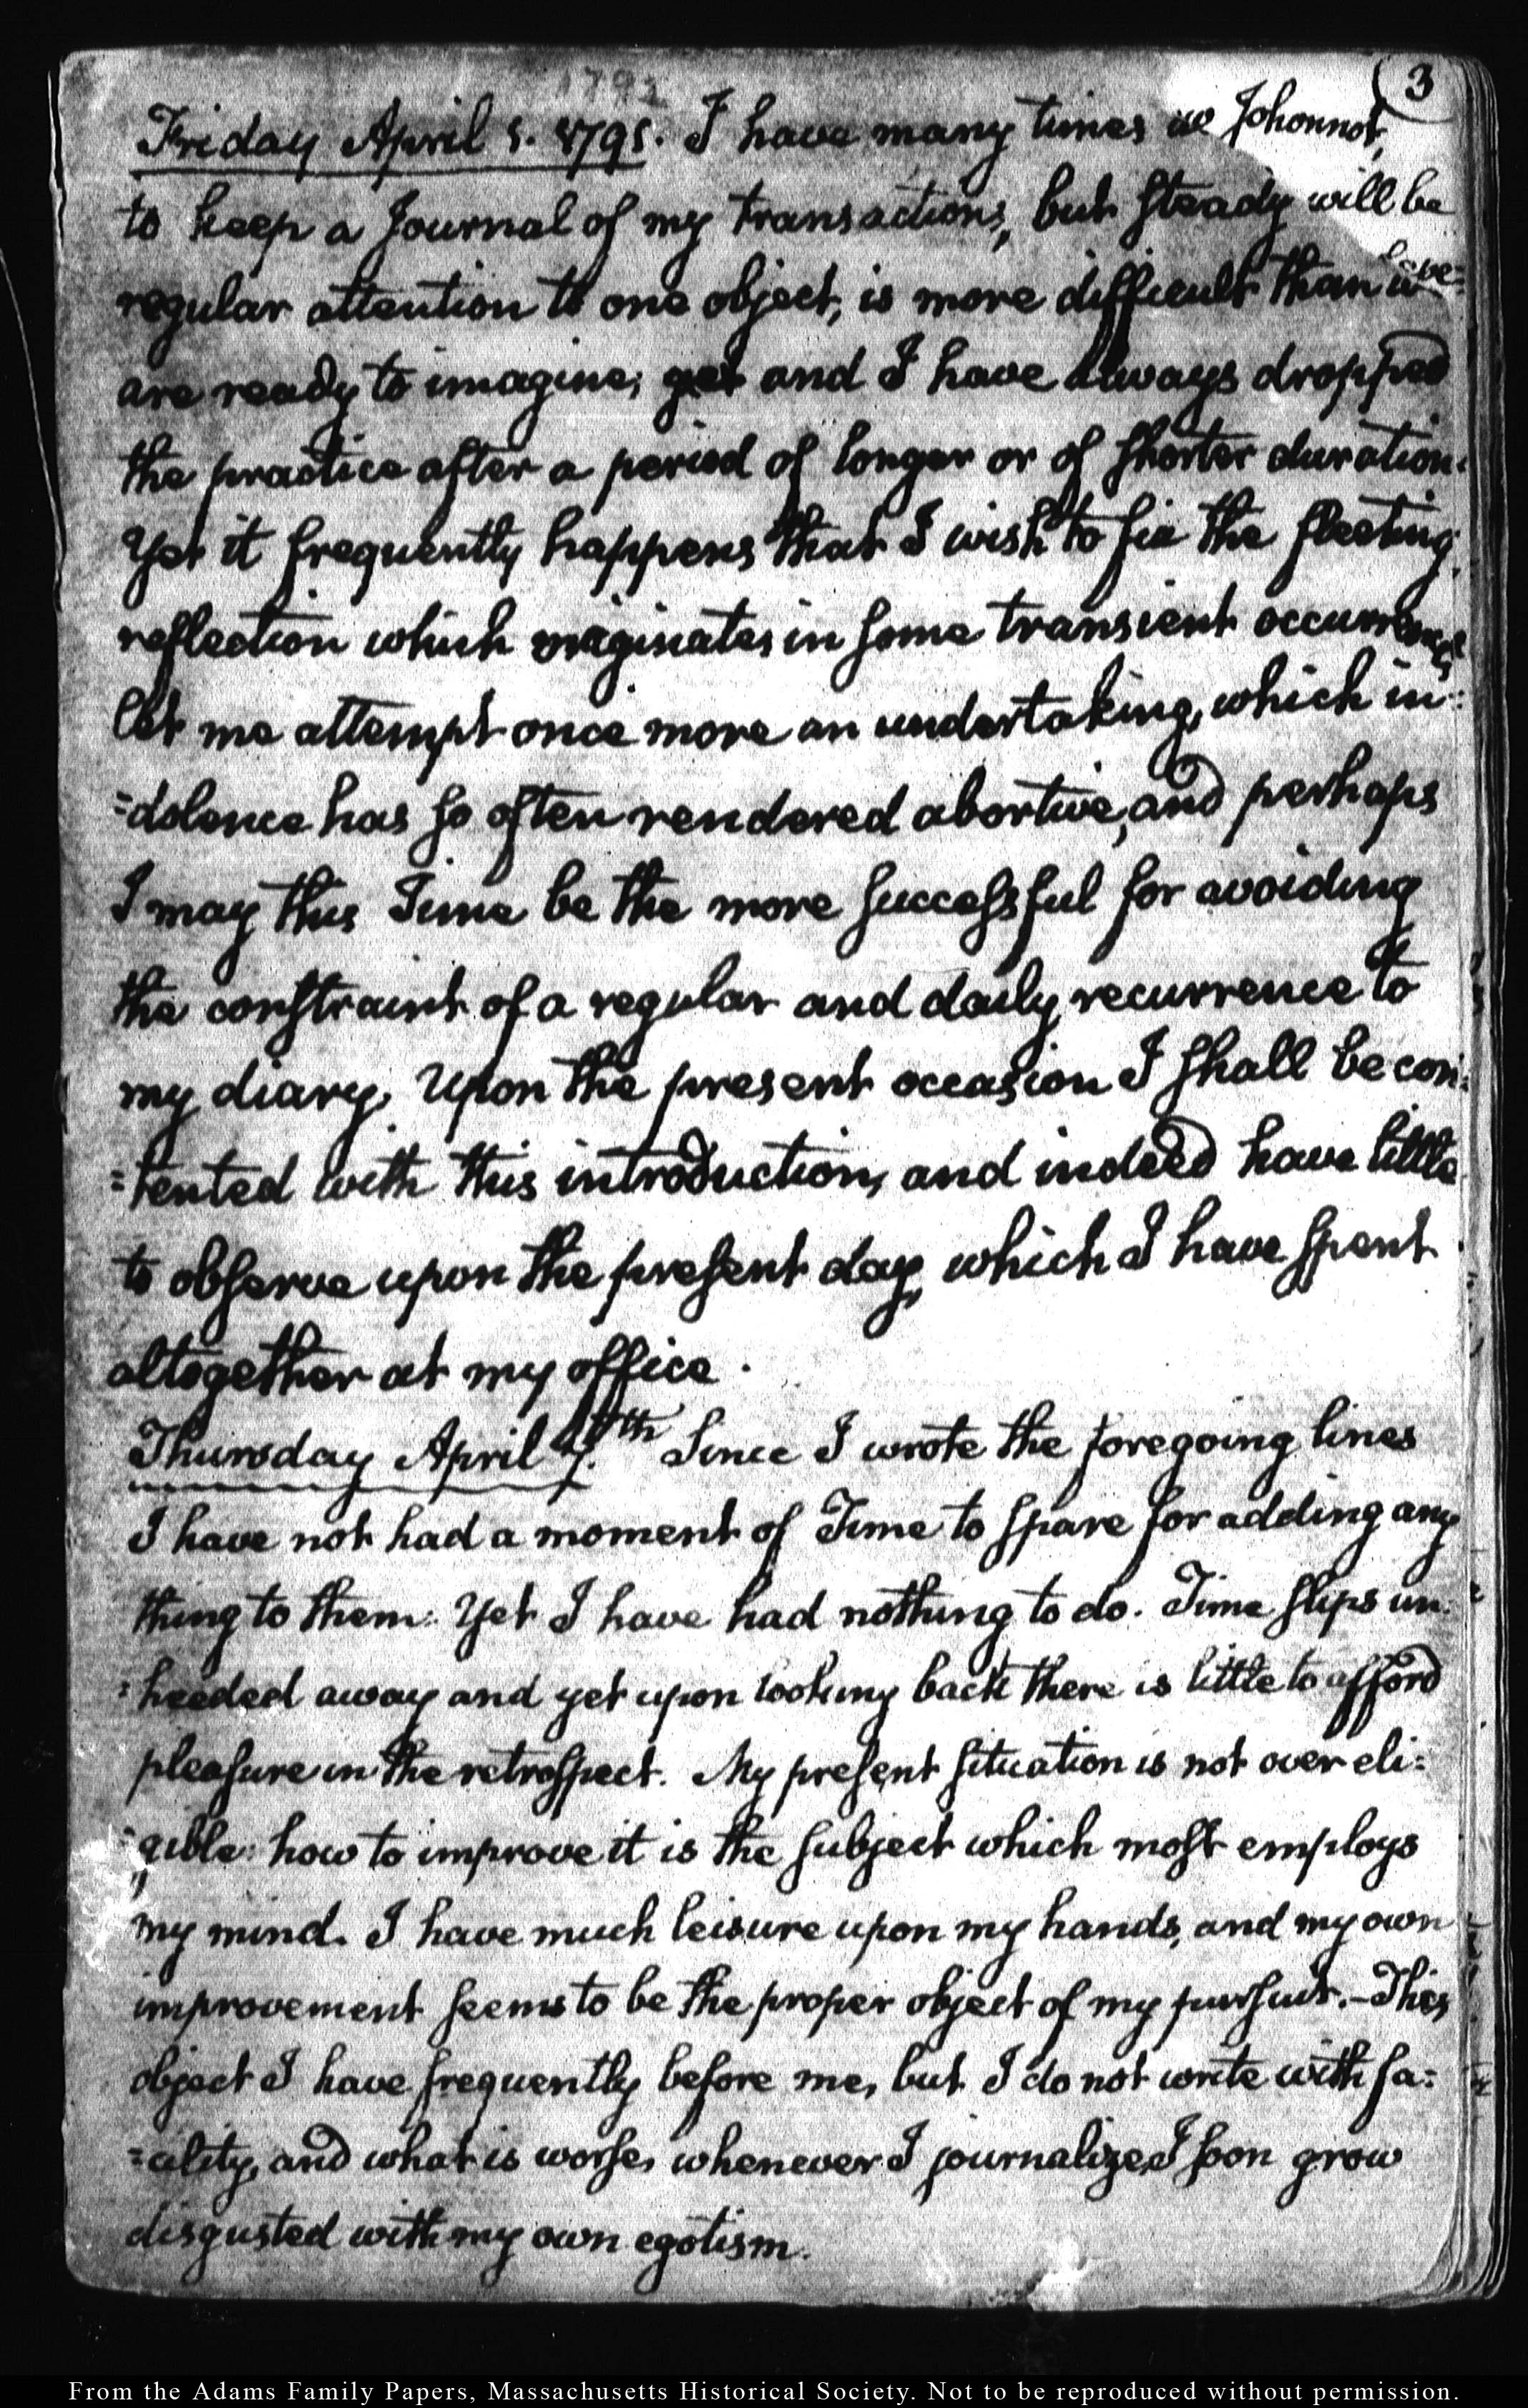 1795
3
Friday April 5. 1791. I have many times Johonnot,
to keep a Journal of my transactions, but steady will be
regular attention to one object, is more difficult than
are ready to imagine; and I have always dropped
the practice after a period of longer or of shorter duration.
Yet it frequently happens that I wish to fix the fleeting
reflection which originates in some transient occurrence,
let me attempt once more an undertaking, which in-
=dolence has so often rendered abortive, and perhaps
I may this Time be the more successful for avoiding
the constraint of a regular and daily recurrence to
my diary. Upon the present occasion I shall be con:
=tented with this introduction, and indeed have little
to observe upon the present day, which I have spent
altogether at my office.
Thursday April 7.th Since I wrote the foregoing lines
I have not had a moment of Time to spare for adding any
thing to them: Yet I have had nothing to do. Time slips un:
=heeded away and yet upon looking back there is little to afford
pleasure in the retrospect. My present situation is not over eli:
=gible: how to improve it is the subject which most employs
my mind. I have much leisure upon my hands, and my own
improvement seems to be the proper object of my pursuit. — This
object I have frequently before me, but I do not write with fa:
=cility, and what is worse, whenever I journalize, I soon grow
disgusted with my own egotism.
From the Adams Family Papers, Massachusetts Historical Society. Not to be reproduced without permission.